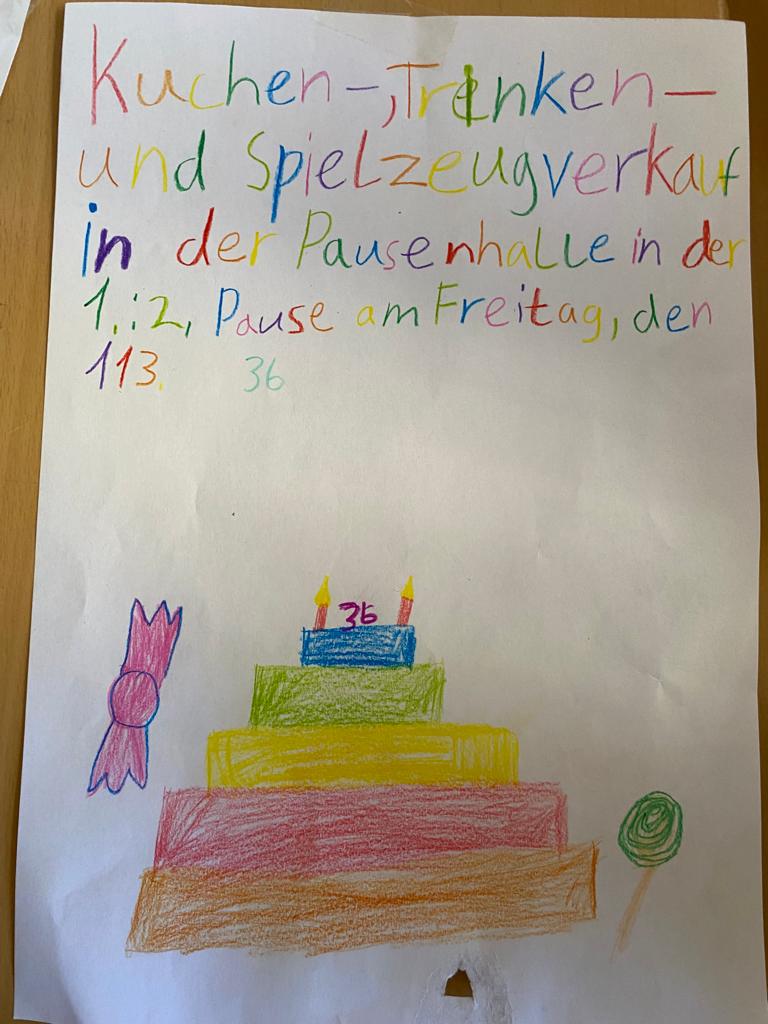 Kuchen-, Trinken-
und Spielzeugverkauf
in der Pausenhalle in der
1.:2, Pause am Freitag, den
113. 3b
3b